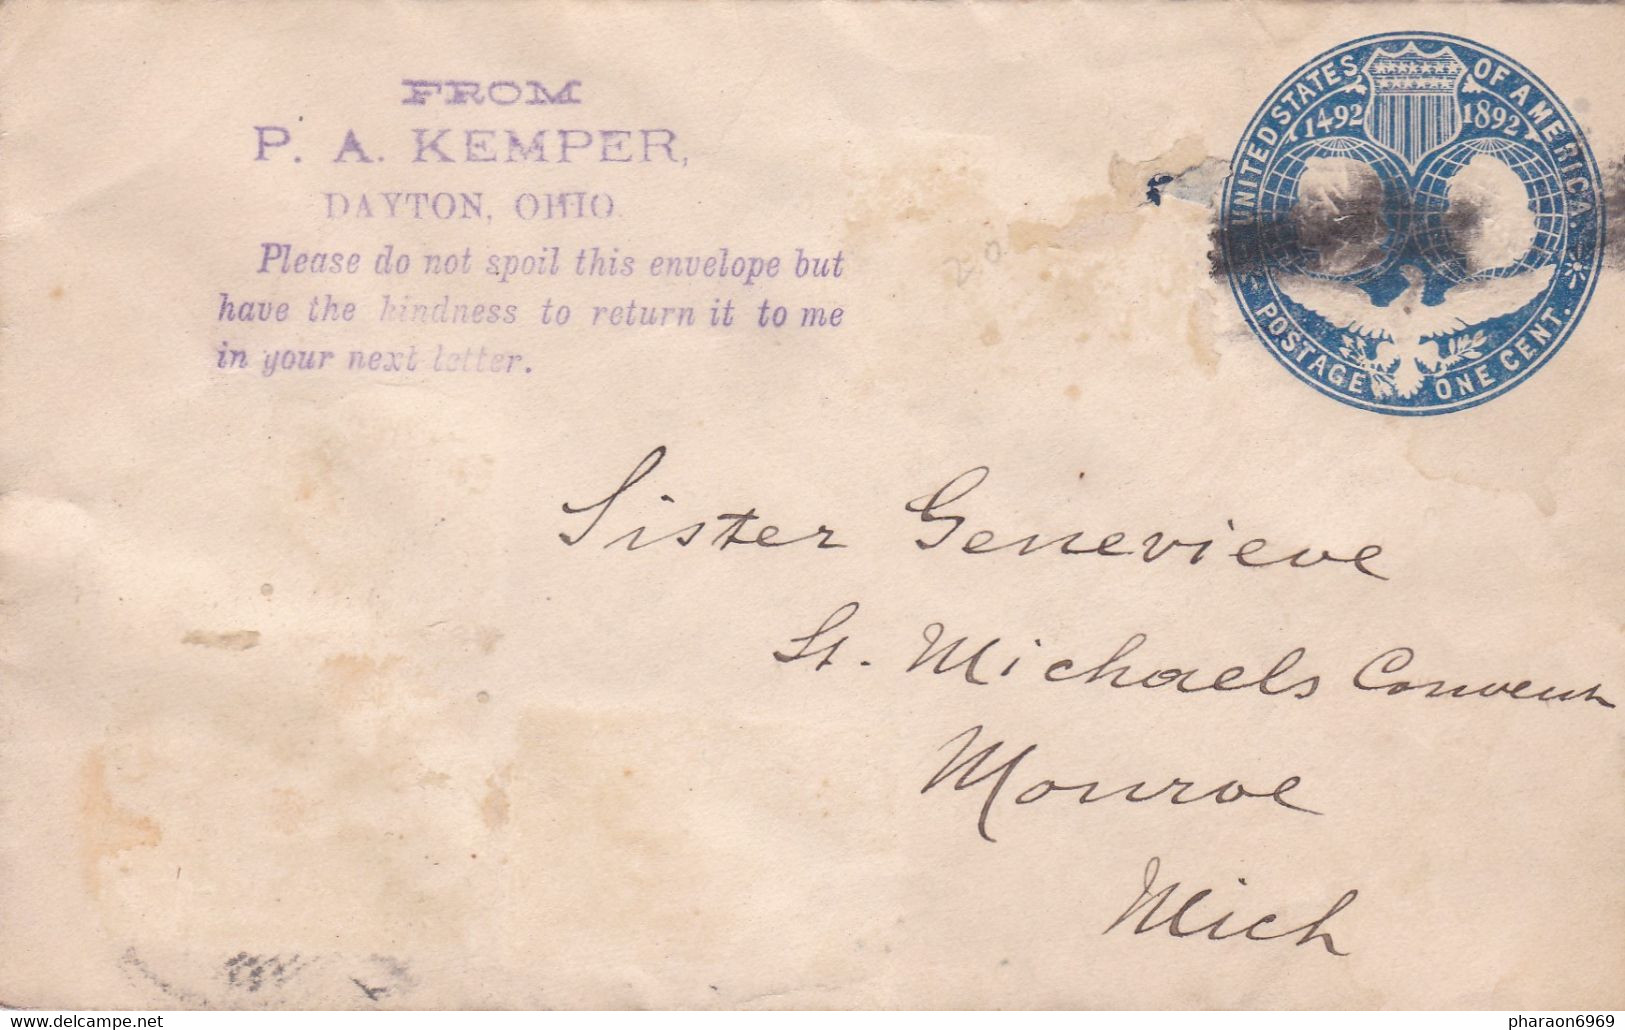 FROM
P. A. KEMPER,
DAYTON, OHIO.
Please do not spoil this envelope but
have the kindness to return it to me
in your next letter.
UNITED STATES OF AMERICA.
1492 1892
POSTAGE ONE CENT.
Sister Genevieve
St. Michaels Convent
Monroe
Mich
www.delcampe.net
pharaon6969